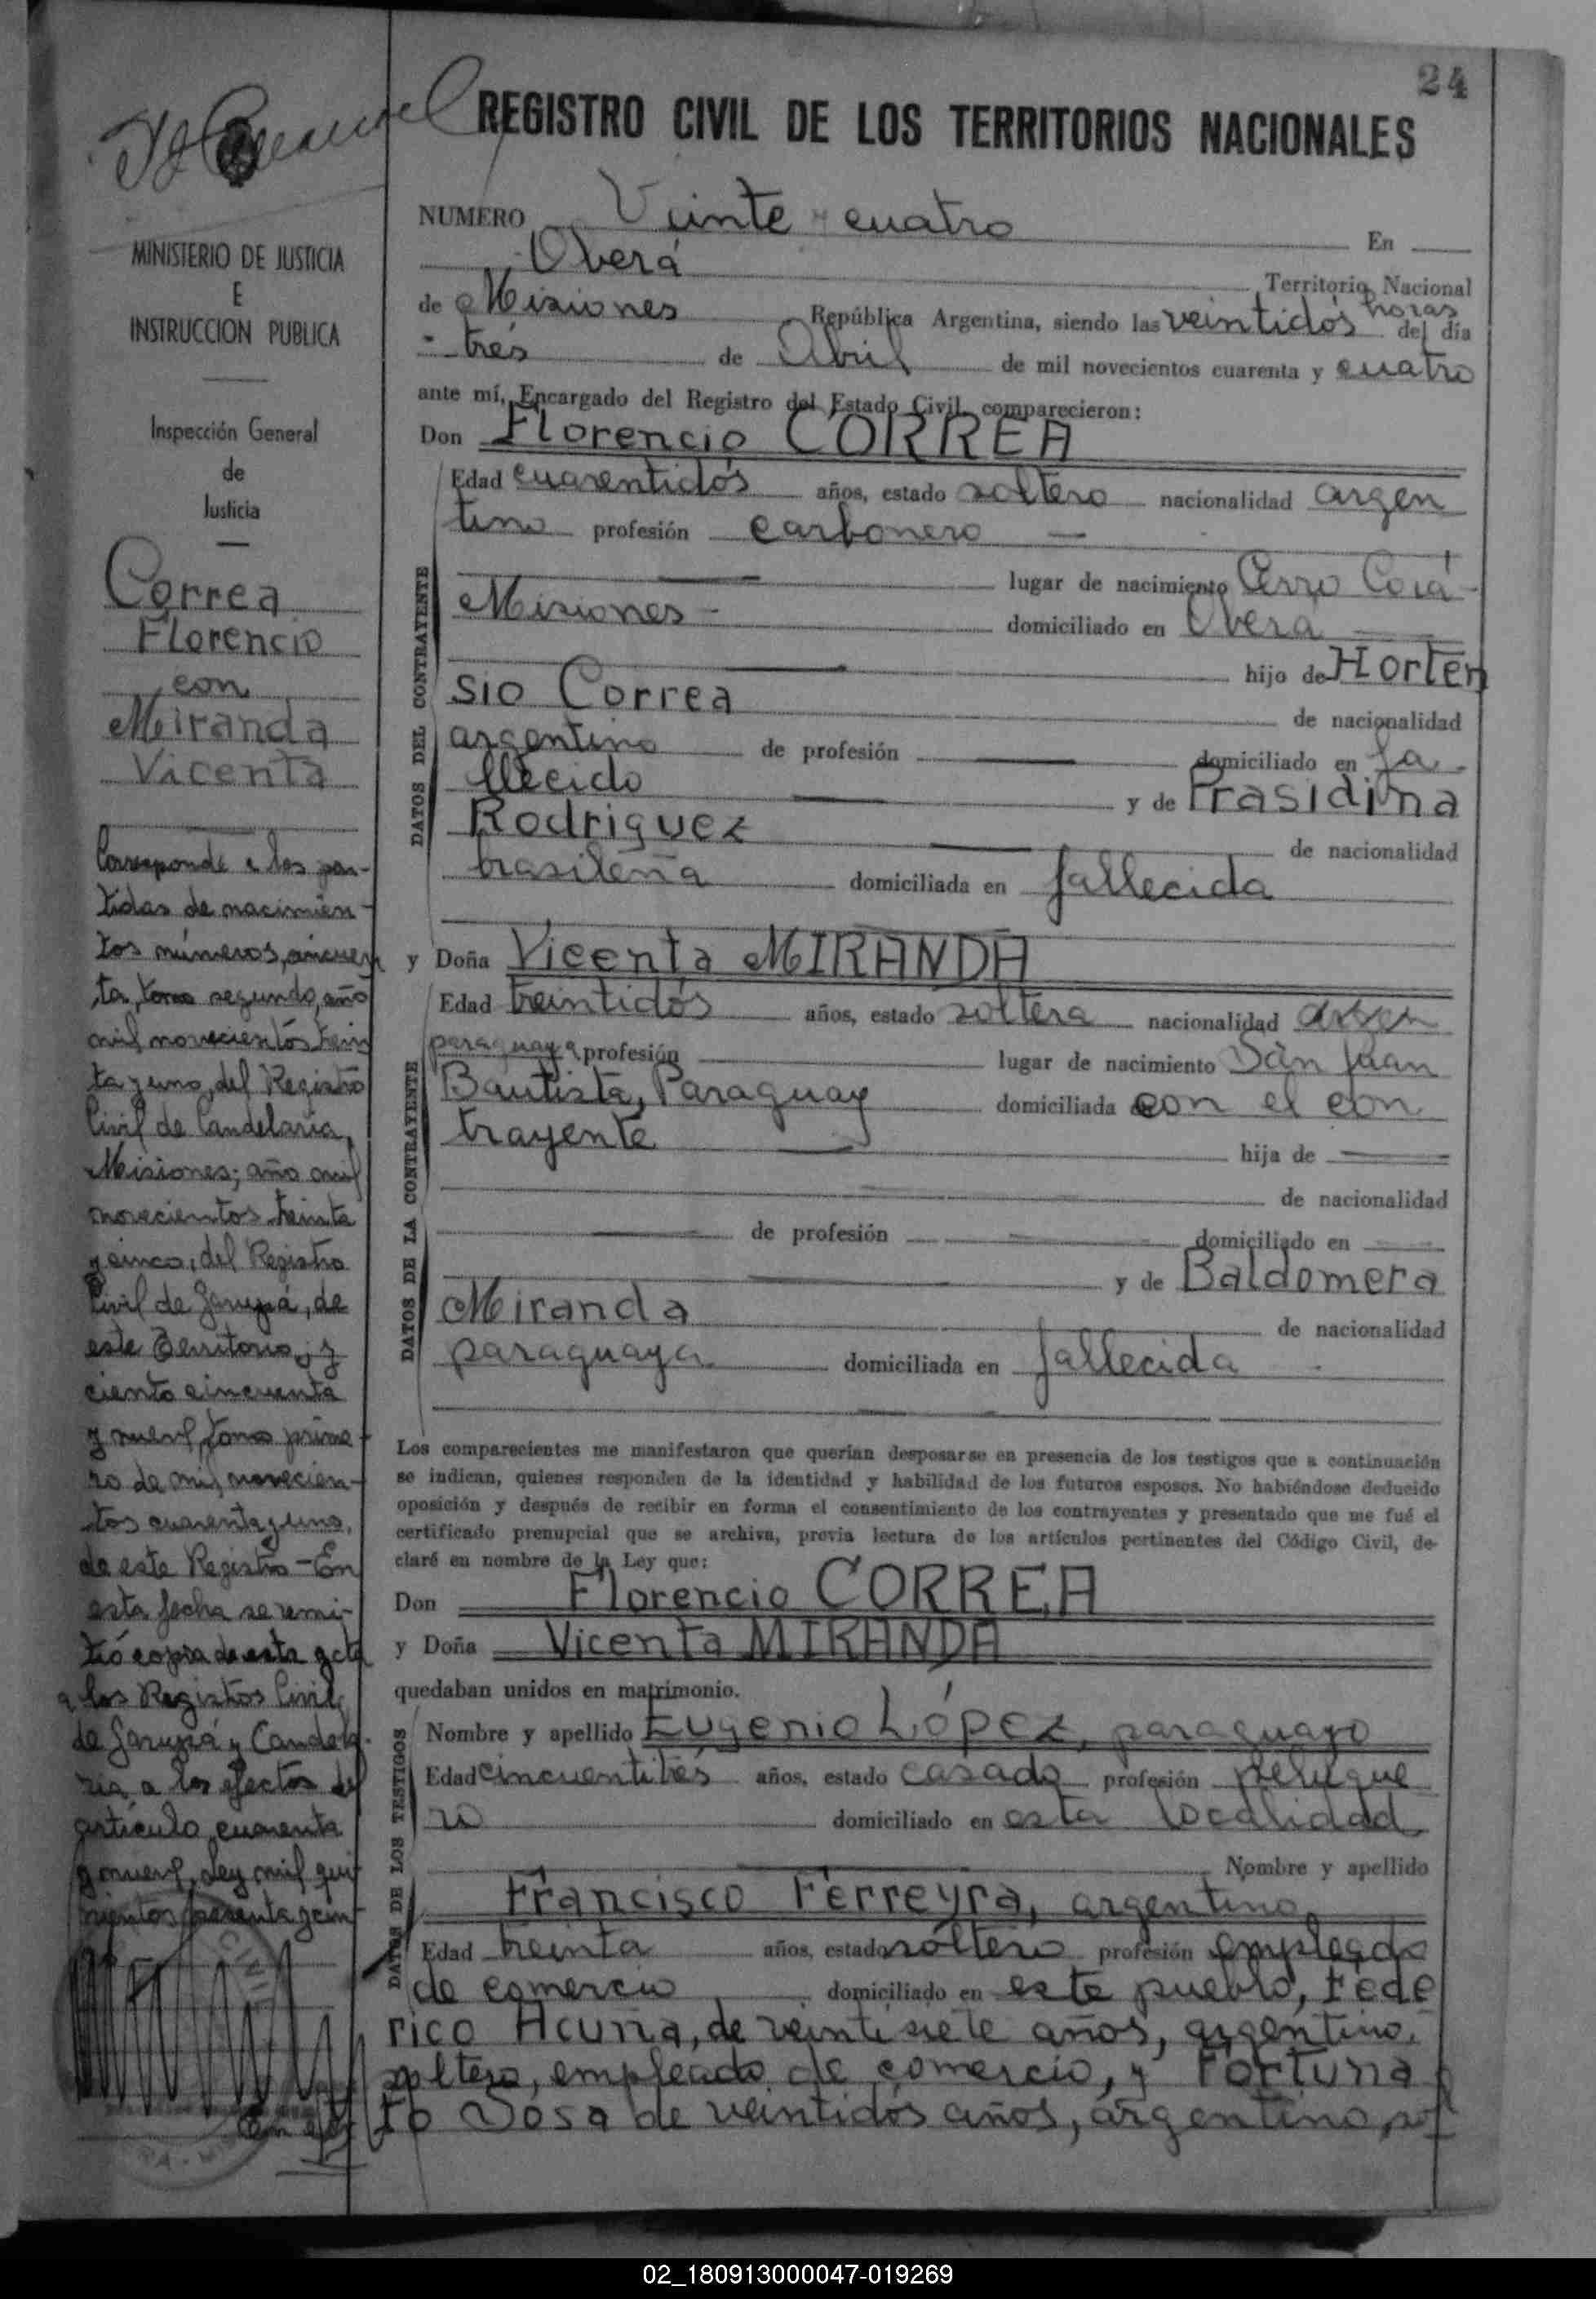 24
REGISTRO CIVIL DE LOS TERRITORIOS NACIONALES
NUMERO Veinte y cuatro En
Oberá Territorio Nacional
de Misiones República Argentina, siendo las veintidós horas del día
tres de Abril de mil novecientos cuarenta y cuatro
ante mí, Encargado del Registro del Estado Civil, comparecieron:
Don Florencio CORREA
Edad cuarentidós años, estado soltero nacionalidad argen
tino profesión carbonero
lugar de nacimiento Cerro Corá
Misiones domiciliado en Oberá
hijo de Horten
sio Correa de nacionalidad
argentino de profesión domiciliado en fa
llecido y de Prasidina
Rodriguez de nacionalidad
brasileña domiciliada en fallecida
y Doña Vicenta MIRANDA
Edad treintidós años, estado soltera nacionalidad argen
paraguaya profesión lugar de nacimiento San Juan
Bautista, Paraguay domiciliada con el con
trayente hija de
de nacionalidad
de profesión domiciliado en
y de Baldomera
Miranda de nacionalidad
paraguaya domiciliada en fallecida
Los comparecientes me manifestaron que querían desposarse en presencia de los testigos que a continuación
se indican, quienes responden de la identidad y habilidad de los futuros esposos. No habiéndose deducido
oposición y después de recibir en forma el consentimiento de los contrayentes y presentado que me fué el
certificado prenupcial que se archiva, previa lectura de los artículos pertinentes del Código Civil, de-
claré en nombre de la Ley que:
Don Florencio CORREA
y Doña Vicenta MIRANDA
quedaban unidos en matrimonio.
Nombre y apellido Eugenio López, paraguayo
Edad cincuentitrés años, estado casado profesión peluque
ro domiciliado en esta localidad
Nombre y apellido
Francisco Ferreyra, argentino,
Edad treinta años, estado soltero profesión empleado
de comercio domiciliado en este pueblo, Fede
rico Acuña, de veintisiete años, argentino,
soltero, empleado de comercio, y Fortuna
to Sosa de veintidós años, argentino, sol
DATOS DEL CONTRAYENTE
DATOS DE LA CONTRAYENTE
DATOS DE LOS TESTIGOS
MINISTERIO DE JUSTICIA
E
INSTRUCCION PUBLICA
Inspección General
de
Justicia
Correa
Florencio
con
Miranda
Vicenta
Corresponde a las par-
tidas de nacimien-
tos números, cincuen
ta, tomo segundo, año
mil novecientos trein
ta y uno, del Registro
Civil de Candelaria,
Misiones; año mil
novecientos treinta
y cinco, del Registro
Civil de Garupá, de
este Territorio; y
ciento cincuenta
y nueve, tomo prime-
ro de mil novecien-
tos cuarenta y uno,
de este Registro - En
esta fecha se remi-
tió copia de esta acta
a los Registros Civil
de Garupá y Candela-
ria, a los efectos del
artículo cuarenta
y nueve, ley mil qui
nientos sesenta y cin
02_180913000047-019269